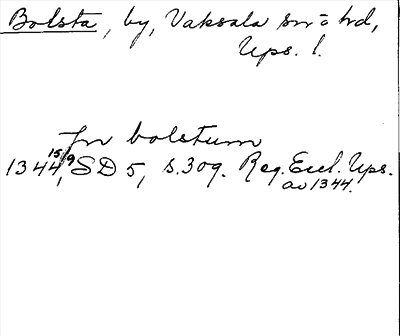 Bolsta, by, Vaksala sn o hd,
Ups. l.
Jn bolstum
1344 15/9, SD 5, s. 309. Reg. Eccl. Ups.
av 1344.